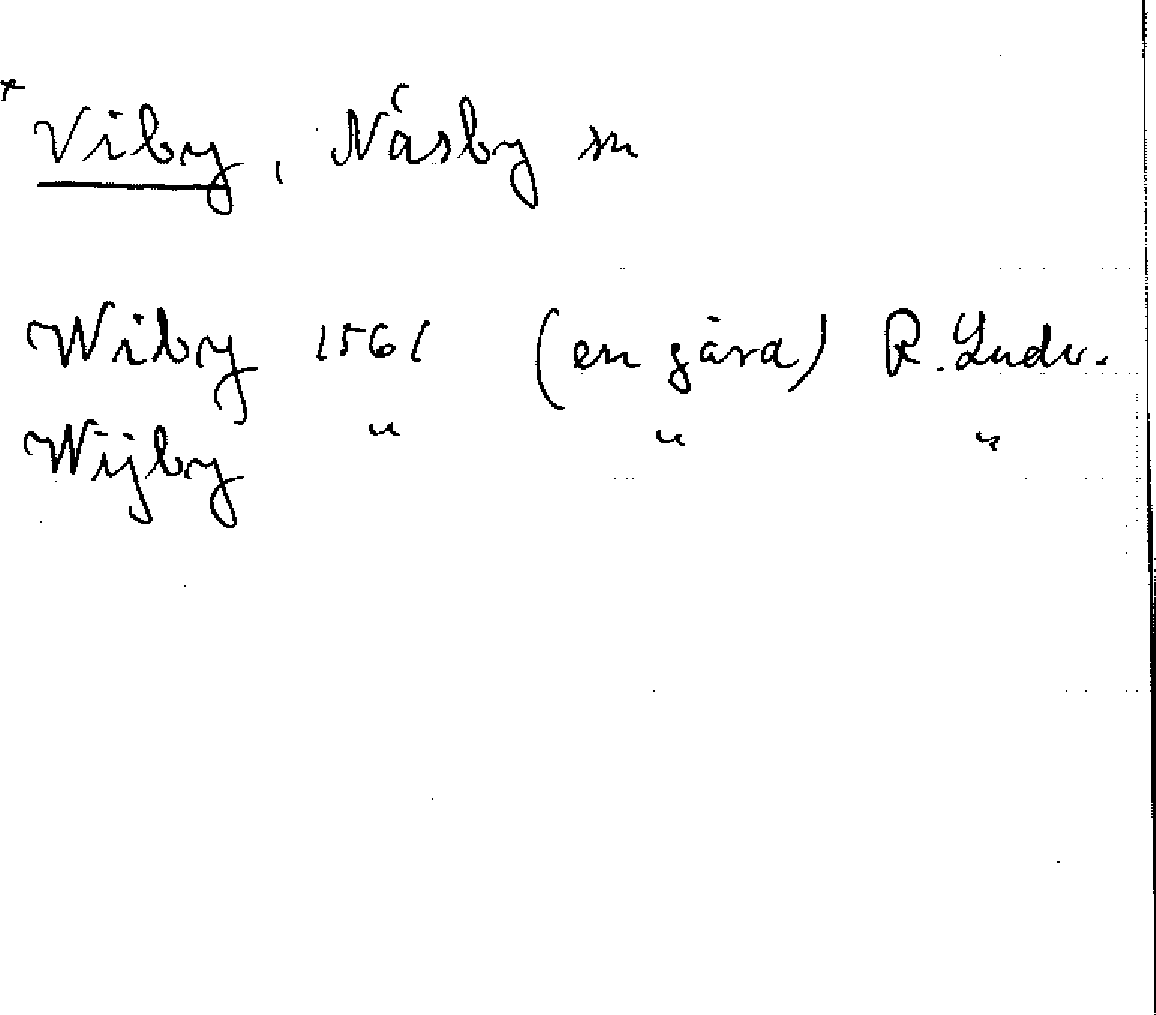 + Viby, Näsby sn
Wiby 1561 (en gärd) R. Ludv.
Wijby " " "